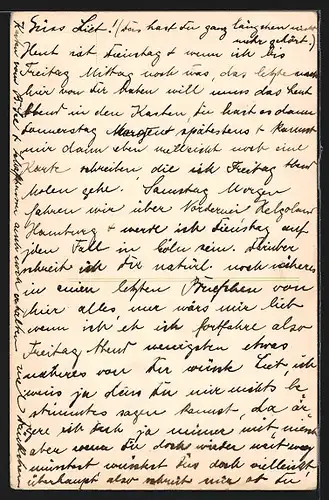 Süss Lieb! (Das hast du ganz längstens nicht
mehr gehört!)
Heut ist Dienstag & wenn ich bis
Freitag Mittag noch was, das letzte nach
hier von Dir haben will muss das heut
Abend in den Kasten, Du hast es dann
Donnerstag Morgen spätestens & kannst
mir dann eben vielleicht noch eine
Karte schreiben, die ich Freitag Abend
holen gehe. Samstag Morgen
fahren wir über Norderney Helgoland
Hamburg & werde ich Dienstag auf
jden Fall in Cöln sein. Drüber
schreib ich Dir natürl. noch näheres
in einem letzten Briefchen von
hier alles, nur wärs mir lieb
wenn ich, eh ich fortfahre also
Freitag Abend wenigstens etwas
näheres von Dir wüsste Lieb, ich
weiss ja dass Du mir nichts be
stimmtes sagen kannst, da är-
gere ich mich ja immer mit
aber wenn Du doch wieder weit weg
müsstest wüsstest Du's doch vielleicht,
überhaupt also schreib mir ob Du